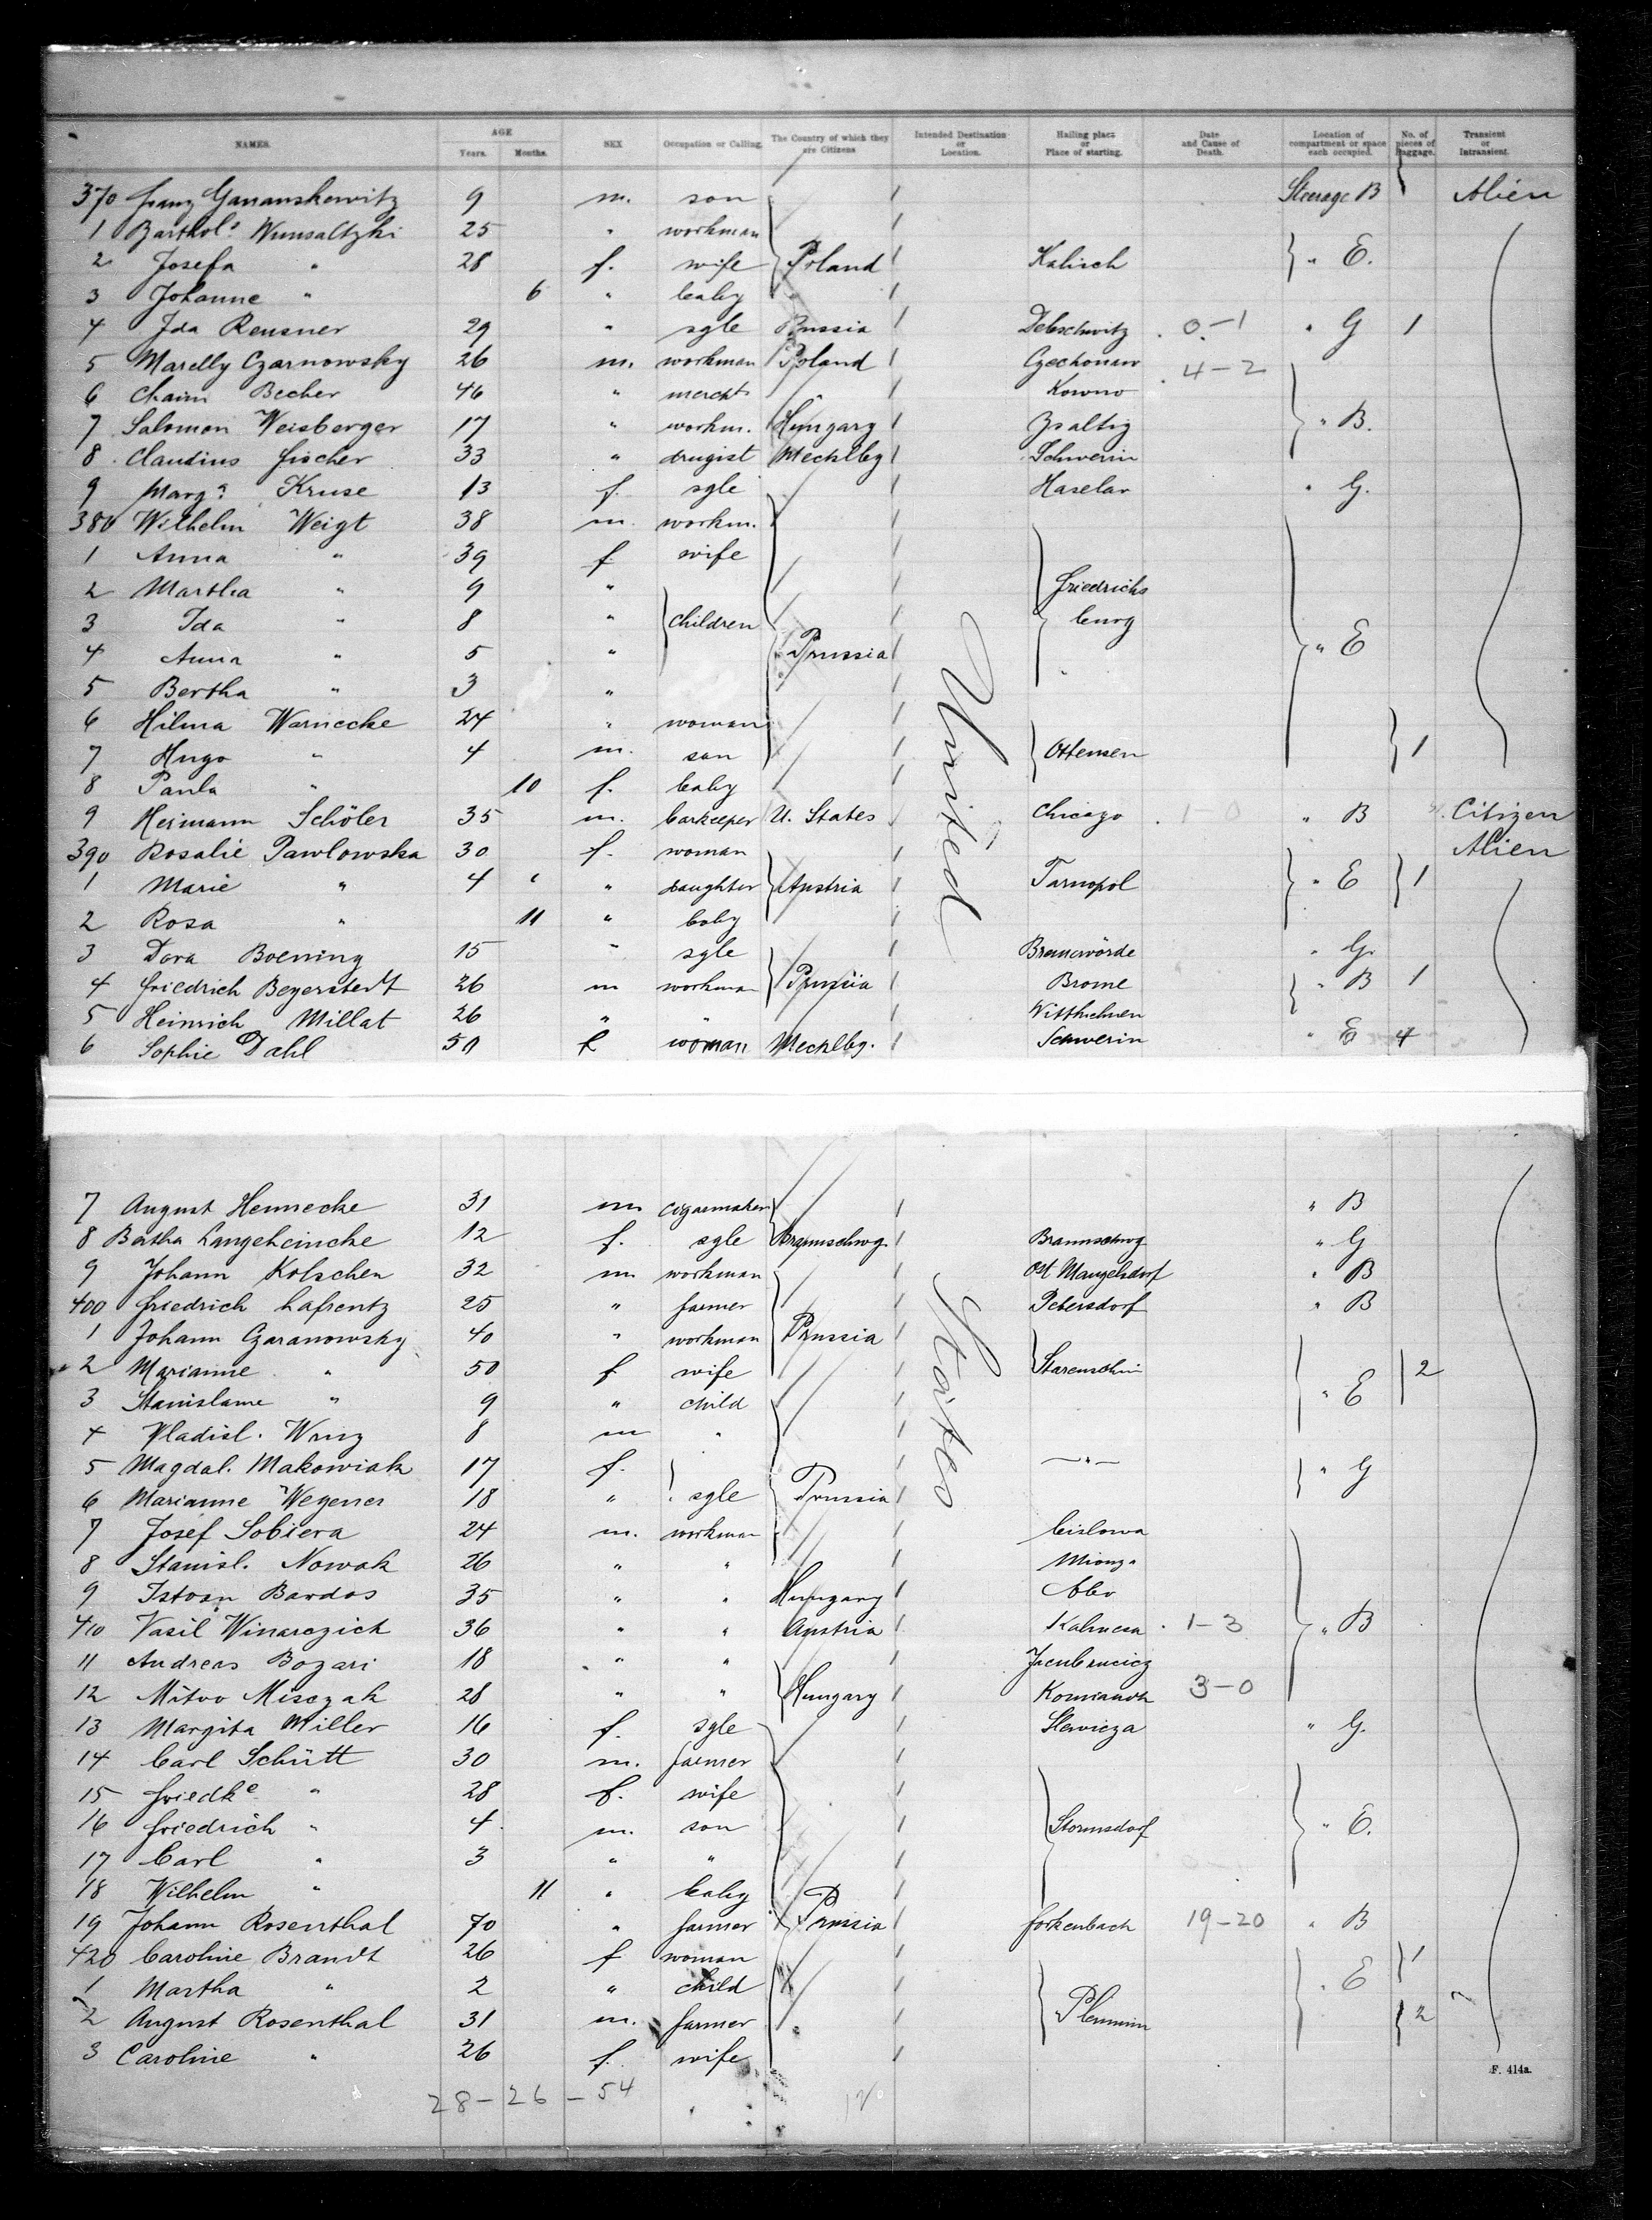 NAMES.
AGE
Years.
Months.
SEX
Occupation or Calling.
The Country of which they are Citizens
Intended Destination or Location.
Hailing place or Place of starting.
Date and Cause of Death.
Location of compartment or space each occupied.
No. of pieces of Baggage.
Transient or Intransient.
370 Franz 9 m. son Steerage B Alien
1 Barthol. 25 " workman
2 Josefa " 28 f. wife Poland Kalisch " E.
3 Johanne " 6 " baby
4 Ida Reusner 29 " sgle Prussia Debschwitz 0-1 " G 1
5 Marelly Czarnowsky 26 m. workman Poland Czechonau 4-2
6 Chaim Becher 46 " mercht Kowno
7 Salomon Weisberger 17 " workm. Hungary " B.
8 Claudius Fischer 33 " drugist Mecklbg Schwerin
9 Marg. Kruse 13 f. sgle Haselar " G.
380 Wilhelm Weigt 38 m. workm.
1 Anna " 39 f wife
2 Martha " 9 " Friedrichs
3 Ida " 8 " children burg
4 Anna " 5 " Prussia " E
5 Bertha " 3 "
6 Hilma Warnecke 24 " woman
7 Hugo " 4 m. son Ottensen 1
8 Paula " 10 f. baby
9 Heimann Schöler 35 m. barkeeper U. States Chicago 1-0 " B Citizen
390 Rosalie Pawlowska 30 f. woman Alien
1 Marie " 4 " daughter Austria Tarnopol " E 1
2 Rosa " 11 " baby
3 Dora Boening 15 " sgle Bremervörde " G.
4 Friedrich Beyerstedt 26 m workman Prussia Brome " B 1
5 Heinrich Millat 26 " "
6 Sophie Dahl 50 f woman Mecklbg. Schwerin " E 4
United
7 August Hennecke 31 m cigarmaker " B
8 Bertha Langeheincke 12 f. sgle Braunschwg. Braunschwg " G
9 Johann Kolschen 32 m workman Ost Mangelsdorf " B
400 Friedrich Lafrentz 25 " farmer Petersdorf " B
1 Johann Czaranowsky 40 " workman Prussia
2 Marianne " 50 f wife 2
3 Stanislawe " 9 " child " E
4 Vladisl. 8 m "
5 Magdal. Makowiak 17 f. —"— " G
6 Marianne Wegener 18 " sgle Prussia
7 Josef Sobiera 24 m. workman Cislowa
8 Stanisl. Nowak 26 " "
9 Istvan Bardos 35 " " Hungary Abo
410 Vasil Winarczich 36 " " Austria 1-3 " B
11 Andreas Bozari 18 " "
12 Mitvo Misczak 28 " " Hungary 3-0
13 Margita Miller 16 f. sgle " G.
14 Carl Schütt 30 m. farmer
15 Friedke " 28 f. wife
16 Friedrich " 4 m. son Stormsdorf " E.
17 Carl " 3 " "
18 Wilhelm " 11 " baby
19 Johann Rosenthal 70 " farmer Prussia Forkenbach 19-20 " B
420 Caroline Brandt 26 f woman 1
1 Martha " 2 " child " E
2 August Rosenthal 31 m. farmer Plennin 2
3 Caroline " 26 f. wife
States
28-26-54
F. 414a.